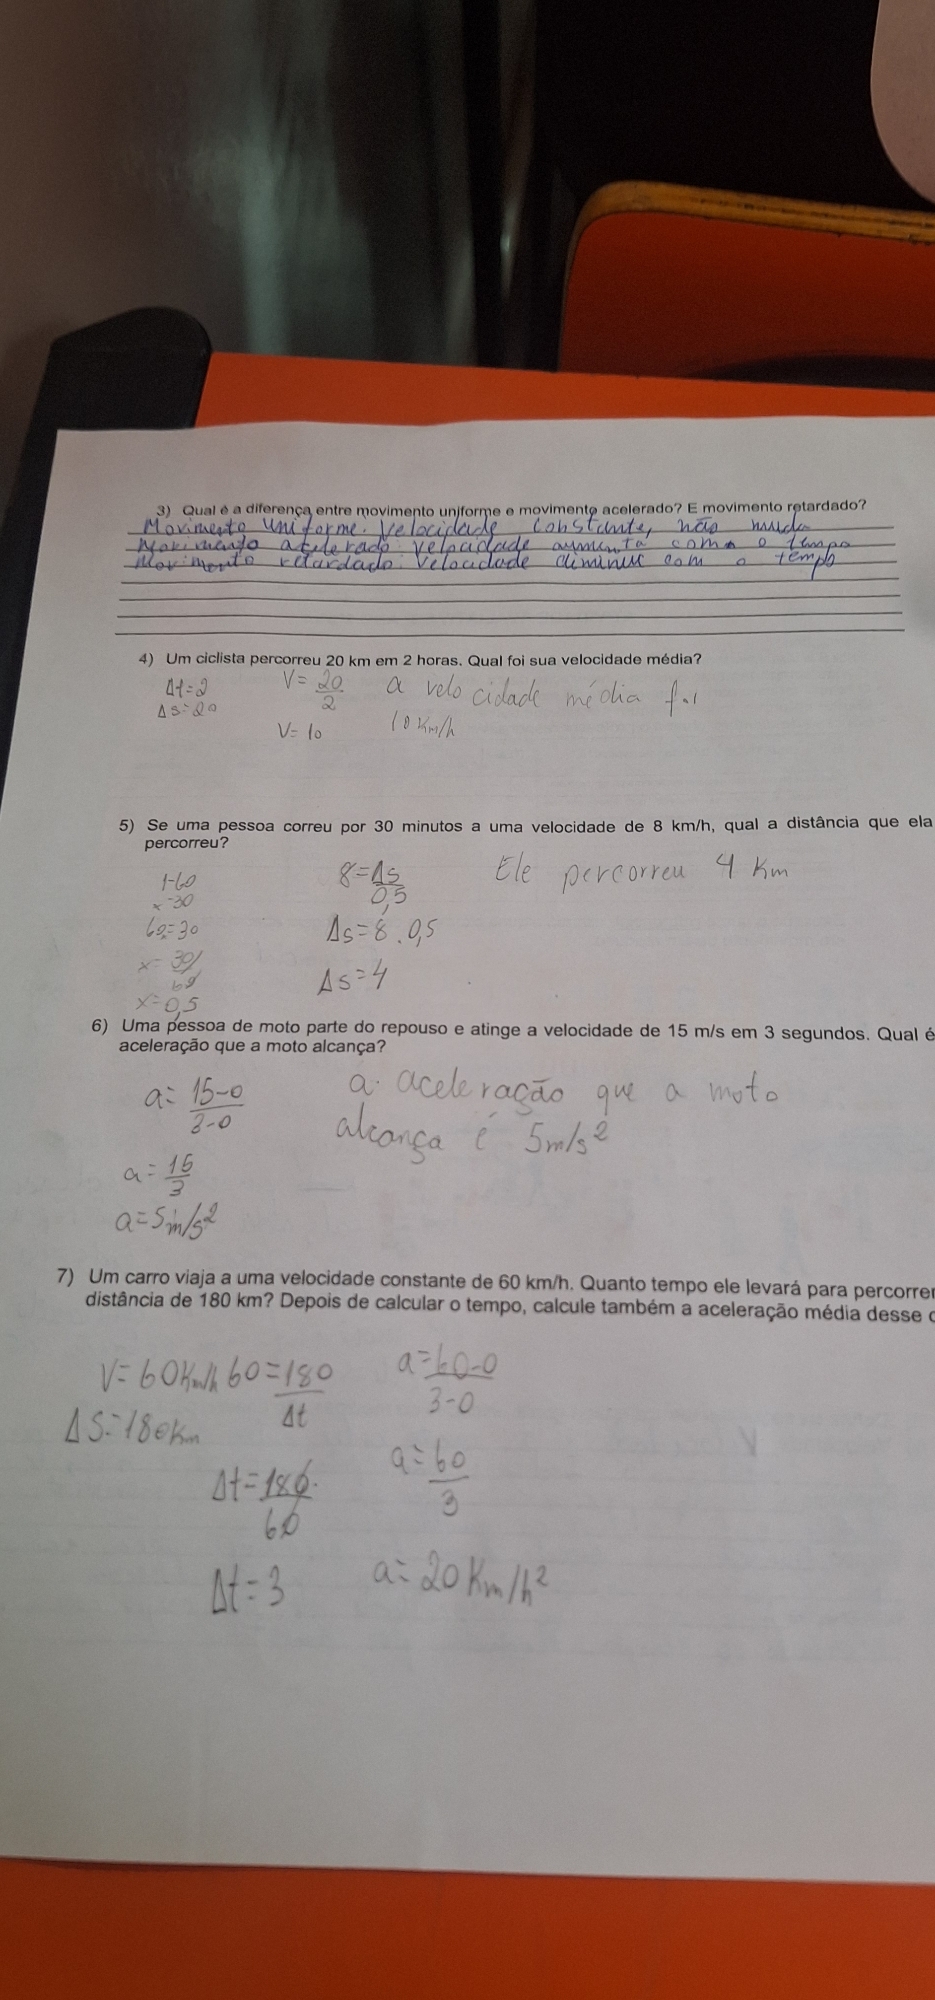 3) Qual é a diferença entre movimento uniforme e movimento acelerado? E movimento retardado?
Movimento uniforme. Velocidade constante, não muda
Movimento acelerado: Velocidade aumenta com o tempo
Movimento retardado: Velocidade diminui com o tempo
4) Um ciclista percorreu 20 km em 2 horas. Qual foi sua velocidade média?
Δt=2
ΔS=20
V=20/2
V=10
a velocidade média foi
10 Km/h
5) Se uma pessoa correu por 30 minutos a uma velocidade de 8 km/h, qual a distância que ela
percorreu?
1-60
x-30
60x=30
x=30/60
x=0,5
8=Δs/0,5
Δs=8.0,5
Δs=4
Ele percorreu 4 Km
6) Uma pessoa de moto parte do repouso e atinge a velocidade de 15 m/s em 3 segundos. Qual é
aceleração que a moto alcança?
a=15-0/3-0
a=15/3
a=5m/s²
a aceleração que a moto
alcança é 5m/s²
7) Um carro viaja a uma velocidade constante de 60 km/h. Quanto tempo ele levará para percorrer
distância de 180 km? Depois de calcular o tempo, calcule também a aceleração média desse
V=60Km/h
ΔS=180Km
60=180/Δt
Δt=180/60
Δt=3
a=60-0/3-0
a=60/3
a=20Km/h²